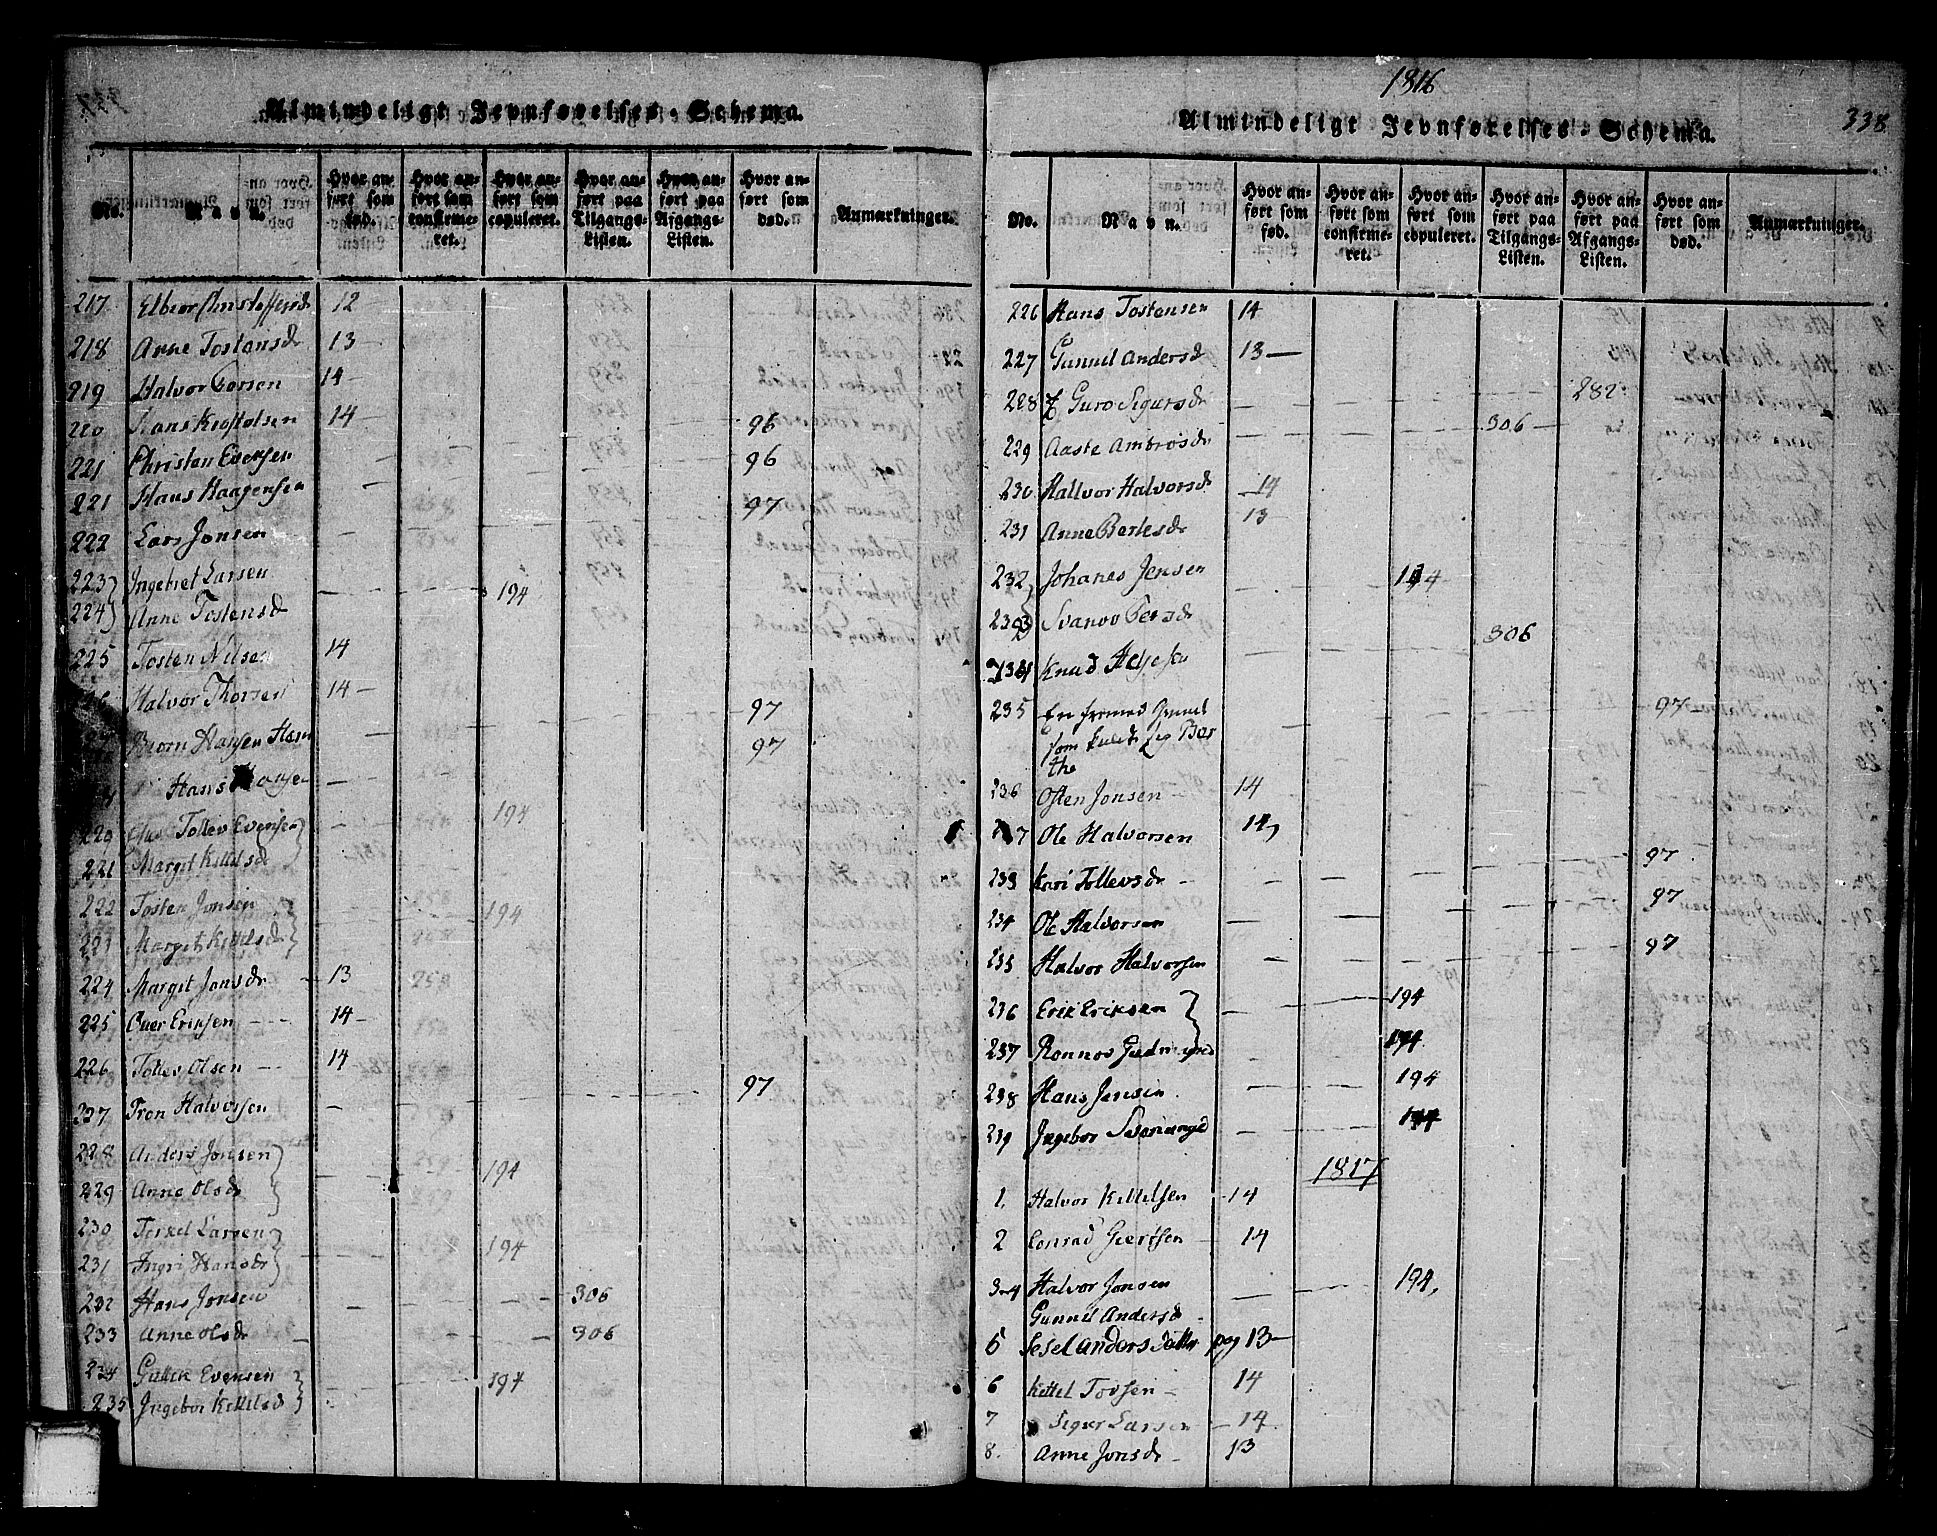 Almindeligt Jevnførelses-Schema.
No.
Navn.
Hvor anført som fød.
Hvor anført som confirmeret.
Hvor anført som copuleret.
Hvor anført paa Tilgangs-Listen.
Hvor anført paa Afgangs-Listen.
Hvor anført som død.
Anmærkninger.
217 12
218 Anne Tostensd 13
219 Halvor 14
220 Hans 14
221 Christen Evensen 96
221 Hans Haagensen 96
222 Lars Jonsen 97
223 Ingebret Larsen
224 Anne Tostensd 194
225 Tosten Nilsen 14
Halvor Thorsen 14
Biørn Hansen 97
Hans 97
220 Tollev Evensen 194
221 Margit Kittelsd
222 Tosten Jonsen 194
223 Margit Kittelsd
224 Margit Jonsd 13
225 Ener Eriksen 14
226 Tollev Olsen 14
227 Tron Halvorsen 97
228 Anders Jonsen
229 Anne Olsd 194
230 Terkel Larsen
231 Ingri Hansdr 194
232 Hans Jonsen 306
233 Anne Olsd 306
234 Gullik Evensen
235 Ingebor Kittelsd 194
1816
338
Almindeligt Jevnførelses-Schema.
No.
Navn.
Hvor anført som fød.
Hvor anført som confirmeret.
Hvor anført som copuleret.
Hvor anført paa Tilgangs-Listen.
Hvor anført paa Afgangs-Listen.
Hvor anført som død.
Anmærkninger.
226 Hans Tostensen 14
227 Gunnil Andersd 13
228 Guro Sigursd 282
229 Aaste Ambrosd 306
230 Hallvor Halvorsd 14
231 Anne Bertesd 13
232 Johanes Jensen 194
233 Svanov Persd
234 Knud 306
235 En fremed 97
som kaldte sig Bar
the
236 Osten Jonsen 14
237 Ole Halvorsen 14
233 Kari Tollevsd 97
234 Ole Halvorsen 97
235 Halvor Halvorsen 97
236 Erik Eriksen 194
237 Ronnov 194
238 Hans Jensen 194
239 Ingebor 194
1817
1. Halvor Kittelsen 14
2 Conrad Giertsen 14
3-4 Halvor Jonsen 194
Gunnil Andersd
5 Sesel Anders Datter pag 13
6 Kittel Tovsen 14
7 Sigur Larsen 14
8. Anne Jonsd 13